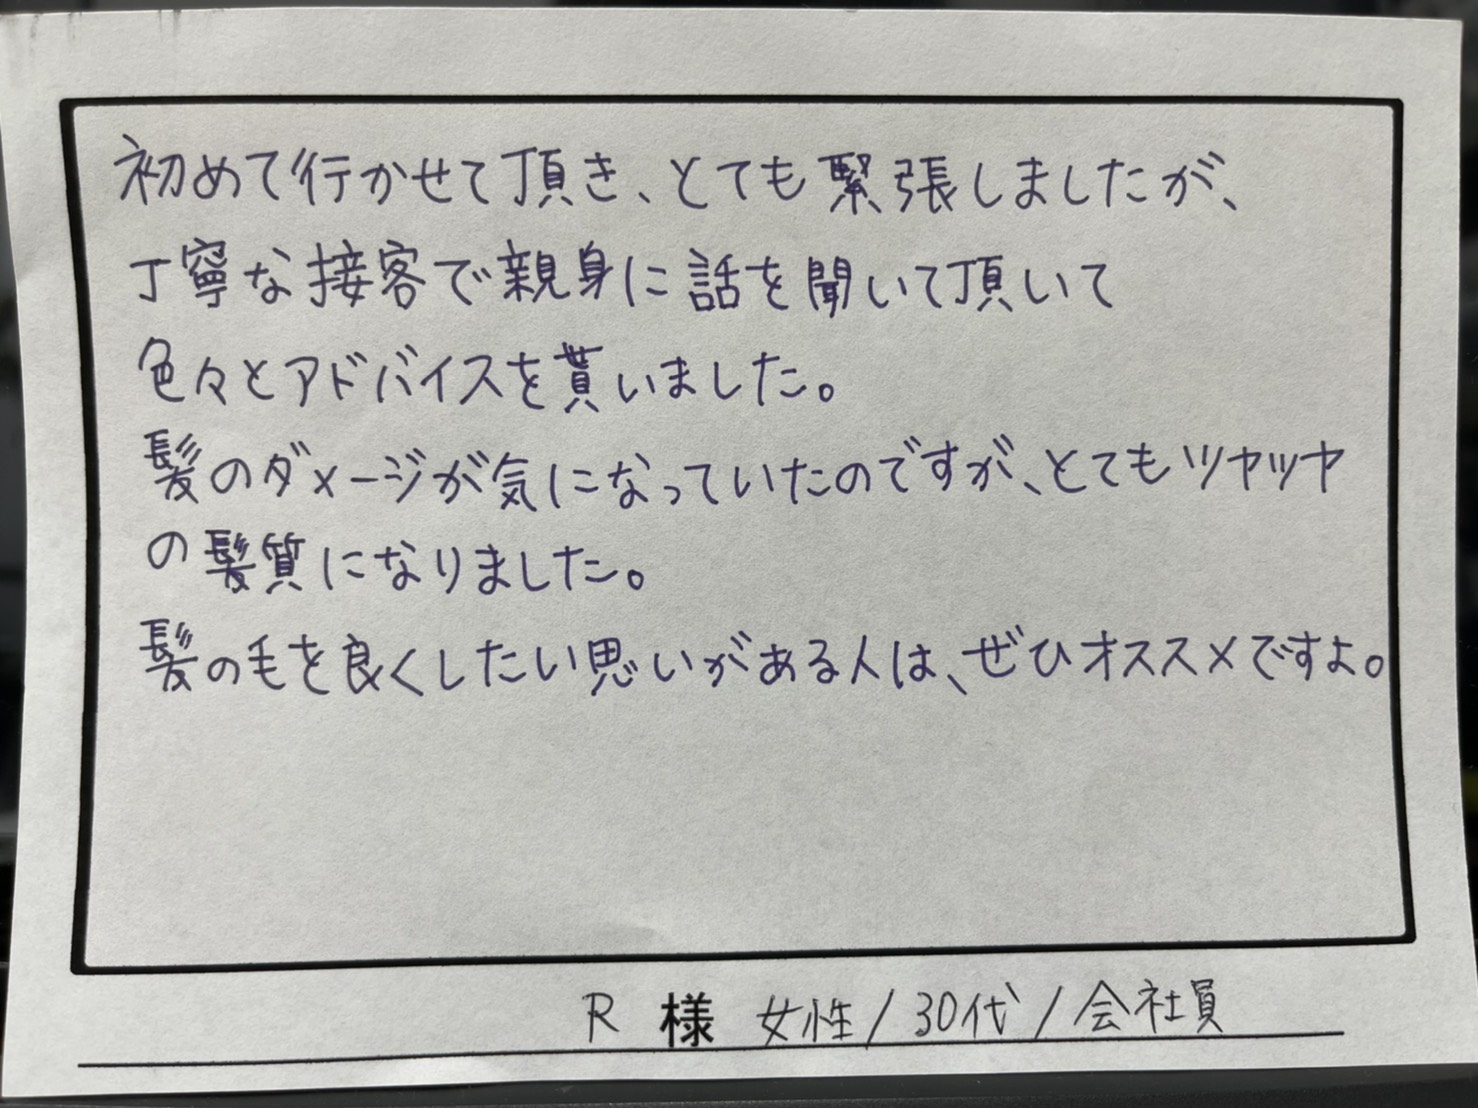 初めて行かせて頂き、とても緊張しましたが、
丁寧な接客で親身に話を聞いて頂いて
色々とアドバイスを貰いました。
髪のダメージが気になっていたのですが、とてもツヤツヤ
の髪質になりました。
髪の毛を良くしたい思いがある人は、ぜひオススメですよ。
R 様 女性/30代/会社員